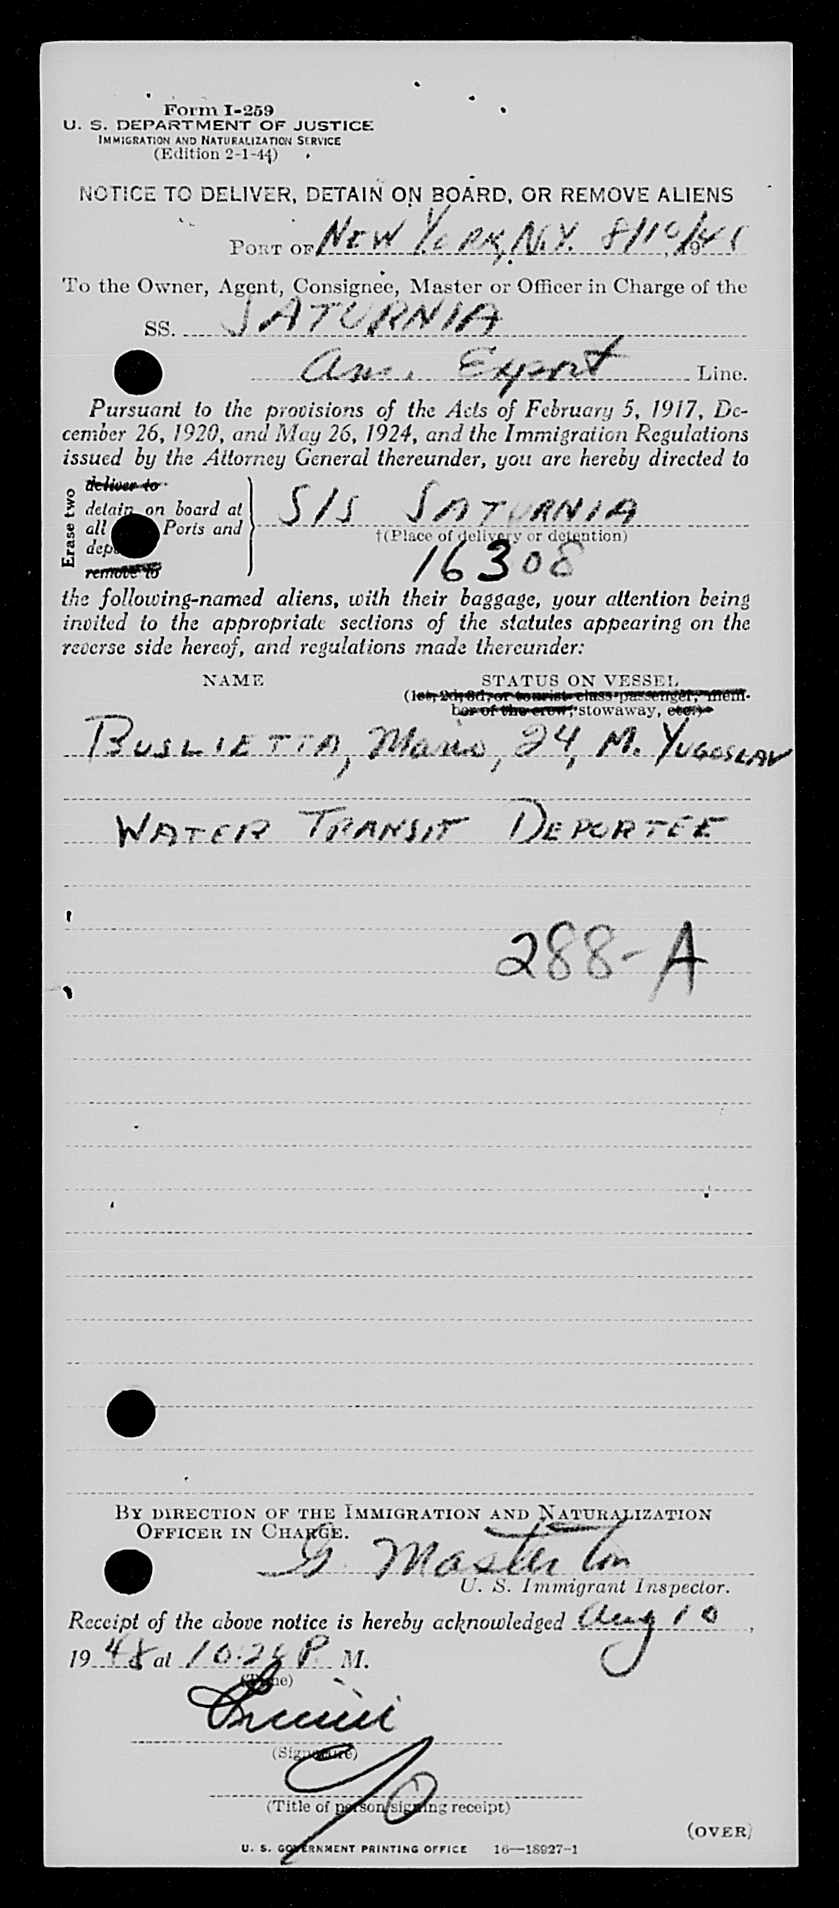 Form I-259
U. S. DEPARTMENT OF JUSTICE
IMMIGRATION AND NATURALIZATION SERVICE
(Edition 2-1-44)
NOTICE TO DELIVER, DETAIN ON BOARD, OR REMOVE ALIENS
PORT OF NEW YORK, N.Y. 8/10/48
To the Owner, Agent, Consignee, Master or Officer in Charge of the
SS. SATURNIA
Am. Export Line.
Pursuant to the provisions of the Acts of February 5, 1917, De-
cember 26, 1920, and May 26, 1924, and the Immigration Regulations
issued by the Attorney General thereunder, you are hereby directed to
Erase two
deliver to
detain on board at
all Ports and
remove to
S/S SATURNIA
†(Place of delivery or detention)
16308
the following-named aliens, with their baggage, your attention being
invited to the appropriate sections of the statutes appearing on the
reverse side hereof, and regulations made thereunder:
NAME STATUS ON VESSEL
(1st, 2d, 3d, or tourist class passenger, mem-
ber of the crew, stowaway, etc.)
BUSLIETTA, Mario, 24, M. YUGOSLAV
WATER TRANSIT DEPORTEE
288-A
BY DIRECTION OF THE IMMIGRATION AND NATURALIZATION
OFFICER IN CHARGE.
G. Masterton
U. S. Immigrant Inspector.
Receipt of the above notice is hereby acknowledged Aug 10,
1948 at 10:26 P. M.
(Time)
(Signature)
(Title of person signing receipt)
(OVER)
U. S. GOVERNMENT PRINTING OFFICE 16—18927-1